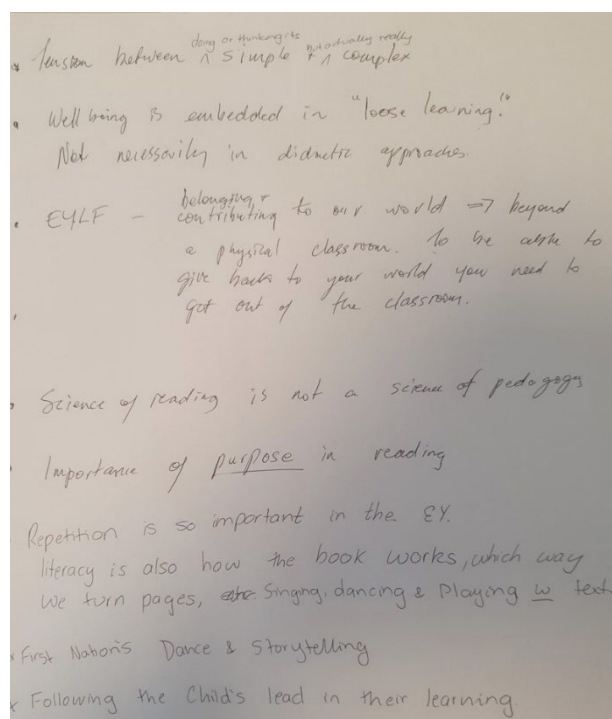 • Tension between ^doing or thinking its simple + ^but actually really complex
• Well being is embedded in "loose learning."
Not necessarily in didactic approaches.
• EYLF - belonging + contributing to our world ⇒ beyond
a physical classroom. To be able to
give back to your world you need to
get out of the classroom.
• Science of reading is not a science of pedagogy
• Importance of purpose in reading
Repetition is so important in the EY.
literacy is also how the book works, which way
we turn pages, Singing, dancing & Playing w text
* First Nation's Dance & Storytelling
* Following the Child's lead in their learning.